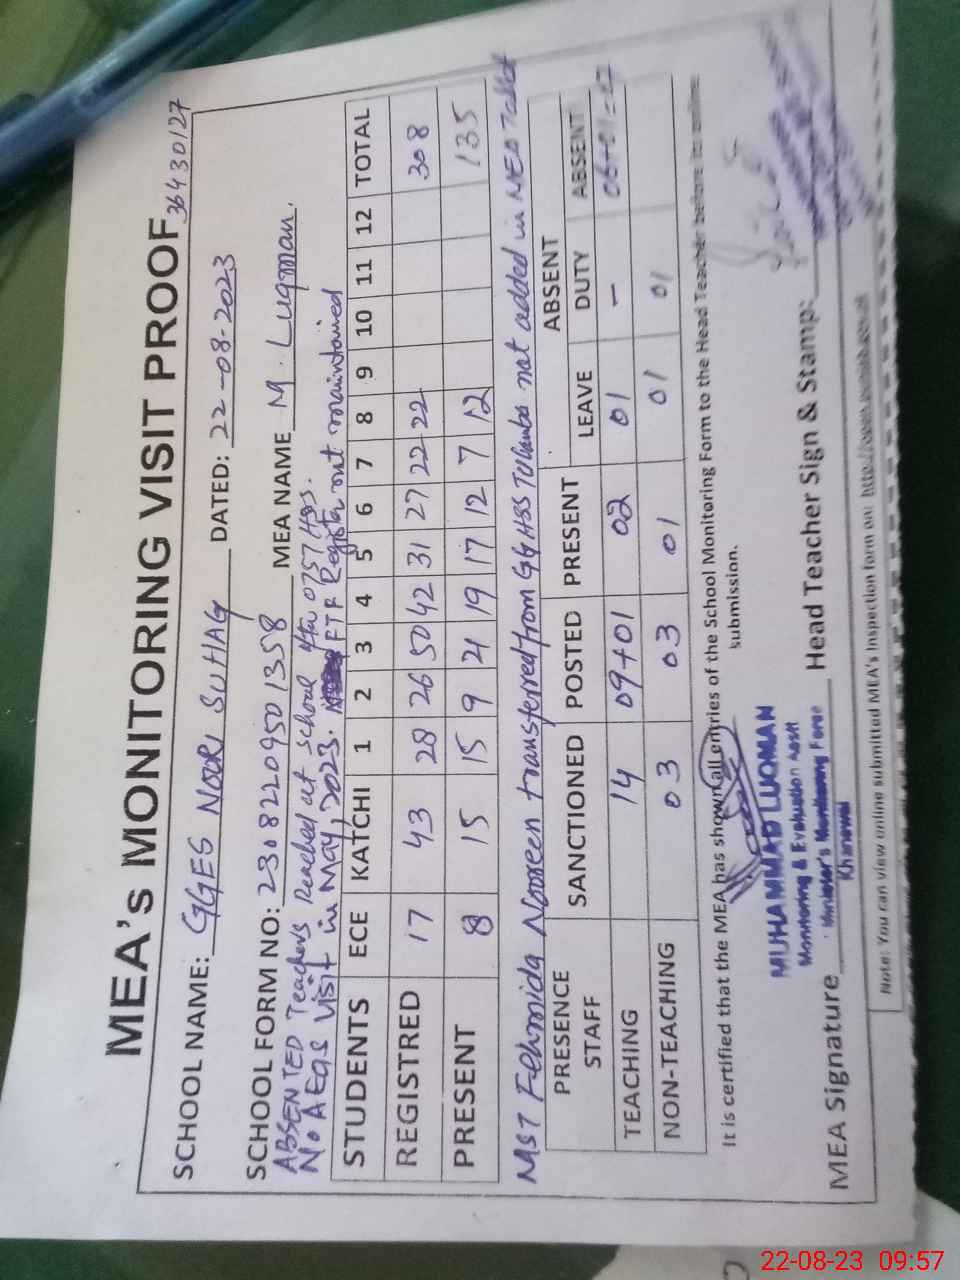 36430127
MEA's MONITORING VISIT PROOF
SCHOOL NAME: GGES NOOR SUHAG DATED: 22-08-2023
SCHOOL FORM NO: 2308220950 1358 MEA NAME M. Luqman.
ABSENTED Teachers Reached at school after 0757 Hrs.
No AEOs visit in May, 2023. FTF Register not maintained
STUDENTS ECE KATCHI 1 2 3 4 5 6 7 8 9 10 11 12 TOTAL
REGISTRED 17 43 28 26 50 42 31 27 22 22 308
PRESENT 8 15 15 9 21 19 17 12 7 12 135
MST Fehmida Noreen transferred from GGHSS Tulamba not added in MEA Tablet
PRESENCE STAFF SANCTIONED POSTED PRESENT ABSENT
LEAVE DUTY ABSENT
TEACHING 14 09+01 02 01 -
NON-TEACHING 03 03 01 01 01
It is certified that the MEA has shown all entries of the School Monitoring Form to the Head Teacher before its online
submission.
MUHAMMAD LUQMAN
Monitoring & Evaluation Asstt
Khanewal
MEA Signature Head Teacher Sign & Stamp:
Note: You can view online submitted MEA's Inspection form on:
22-08-23 09:57